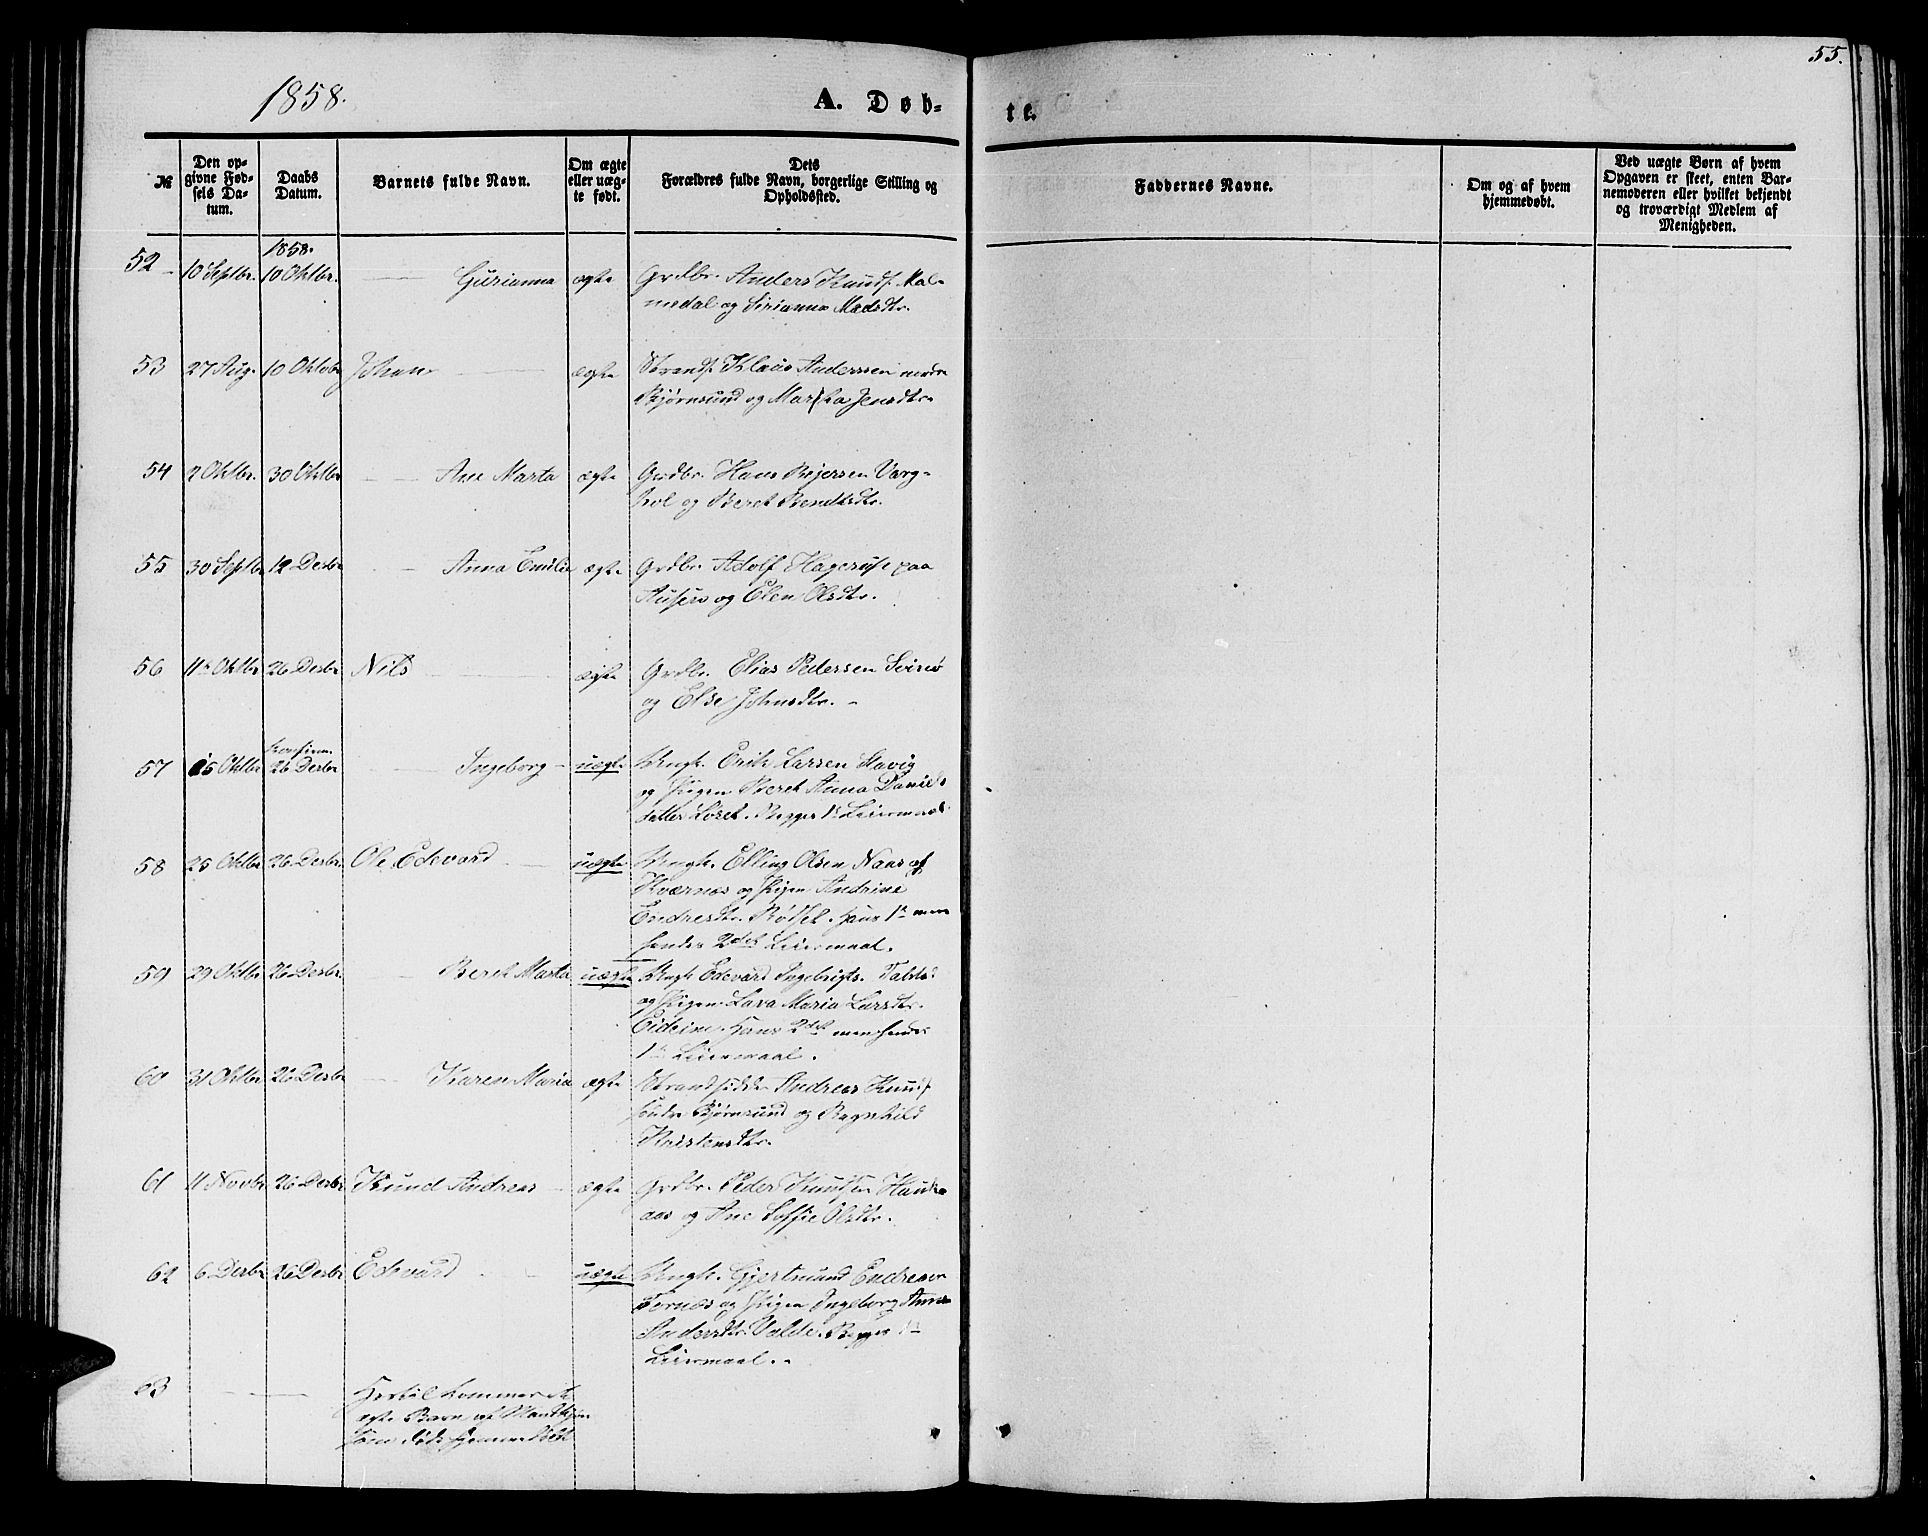 55.
1858.
A. Døb-
te.
№
Den op-
givne Fød-
sels Da-
tum.
Daabs
Datum.
Barnets fulde Navn.
Om ægte
eller uæg-
te født.
Dets
Forældres fulde Navn, borgerlige Stilling og
Opholdssted.
Faddernes Navne.
Om og af hvem
hjemmedøbt.
Ved uægte Børn af hvem
Opgaven er skeet, enten Bar-
nemoderen eller hvilket bekjendt
og troværdigt Medlem af
Menigheden.
1858.
52 10 Septbr. 10 Oktbr. Gurianna ægte Grdbr. Anders Knuds. Mal-
medal og Sirianna Madsdtr.
53 27 Aug. 10 Oktobr Johan ægte Strands. Klaus Anderssen nordre
Bjørnsund og Jensdtr.
54 2 Oktbr. 30 Oktbr Ane Marta ægte Grdbr. Hans
og Beret Bendtsdtr.
55 30 Septbr 12 Desbr Anna Emilie ægte Grdbr. Adolf paa
og Elen Olsdtr.
56 11 Oktbr 26 Desbr Nils ægte Grdbr. Elias Pedersen
og Else Johnsdtr.
57 15 Oktbr 26 Desbr Ingeborg uægte Ungk. Erik Larsen
og Pigen Beret Anna Daniels
datter Begges 1ste Leiermaal
58 25 Oktbr 26 Desbr. Ole Edevard uægte Ungk. Elling Olsen
Kværnes og Pigen Andrine
Endresdtr. Hans 1ste men
hendes 2det Leiermaal.
59 29 Oktbr 26 Desbr. Beret Marta uægte Ungk Edevard Ingebrigts.
og Pigen Maria Larsdtr.
Hans 2det men hendes
1ste Leiermaal.
60 31 Oktbr 26 Desbr Karen Maria ægte Strandsidder Andreas Knuds.
søndre Bjørnsund og Ragnhild
Kristensdtr.
61 11 Novbr 26 Desbr Knud Andreas ægte Grdbr. Peder Knudsen
og Ane Soffie Olsdtr.
62 6 Desbr 26 Desbr Edevard uægte Ungk. Gjertmund Endresen
og Pigen Ingeborg Anna
Andersdtr. Begges 1ste
Leiermaal.
63 Hertil kommer et
ægte Barn af Mandkjøn
som døde hjemmedøbt